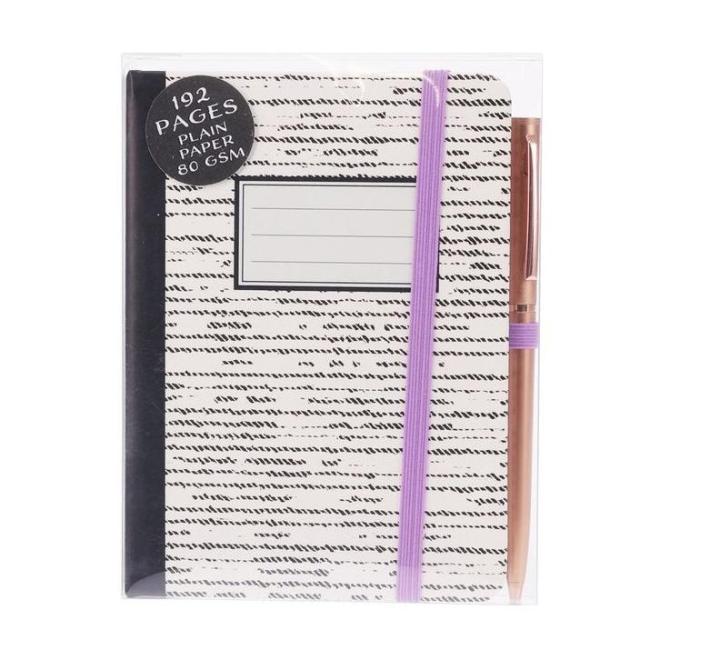 192
PAGES
PLAIN
PAPER
80 GSM